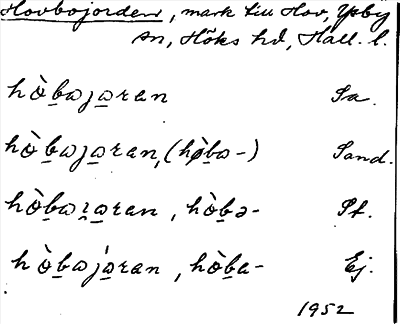 Hovbojorden, mark till Hov, Ysby
sn, Höks hd, Hall. l.
hò̱baja̱ran Sa.
hò̱baja̱ran, (hø̱̀ba-) Sand.
hò̱baɪ̯a̱ran, hò̱bə- St.
hò̱baja̱ran, hò̱ba- Ej.
1952